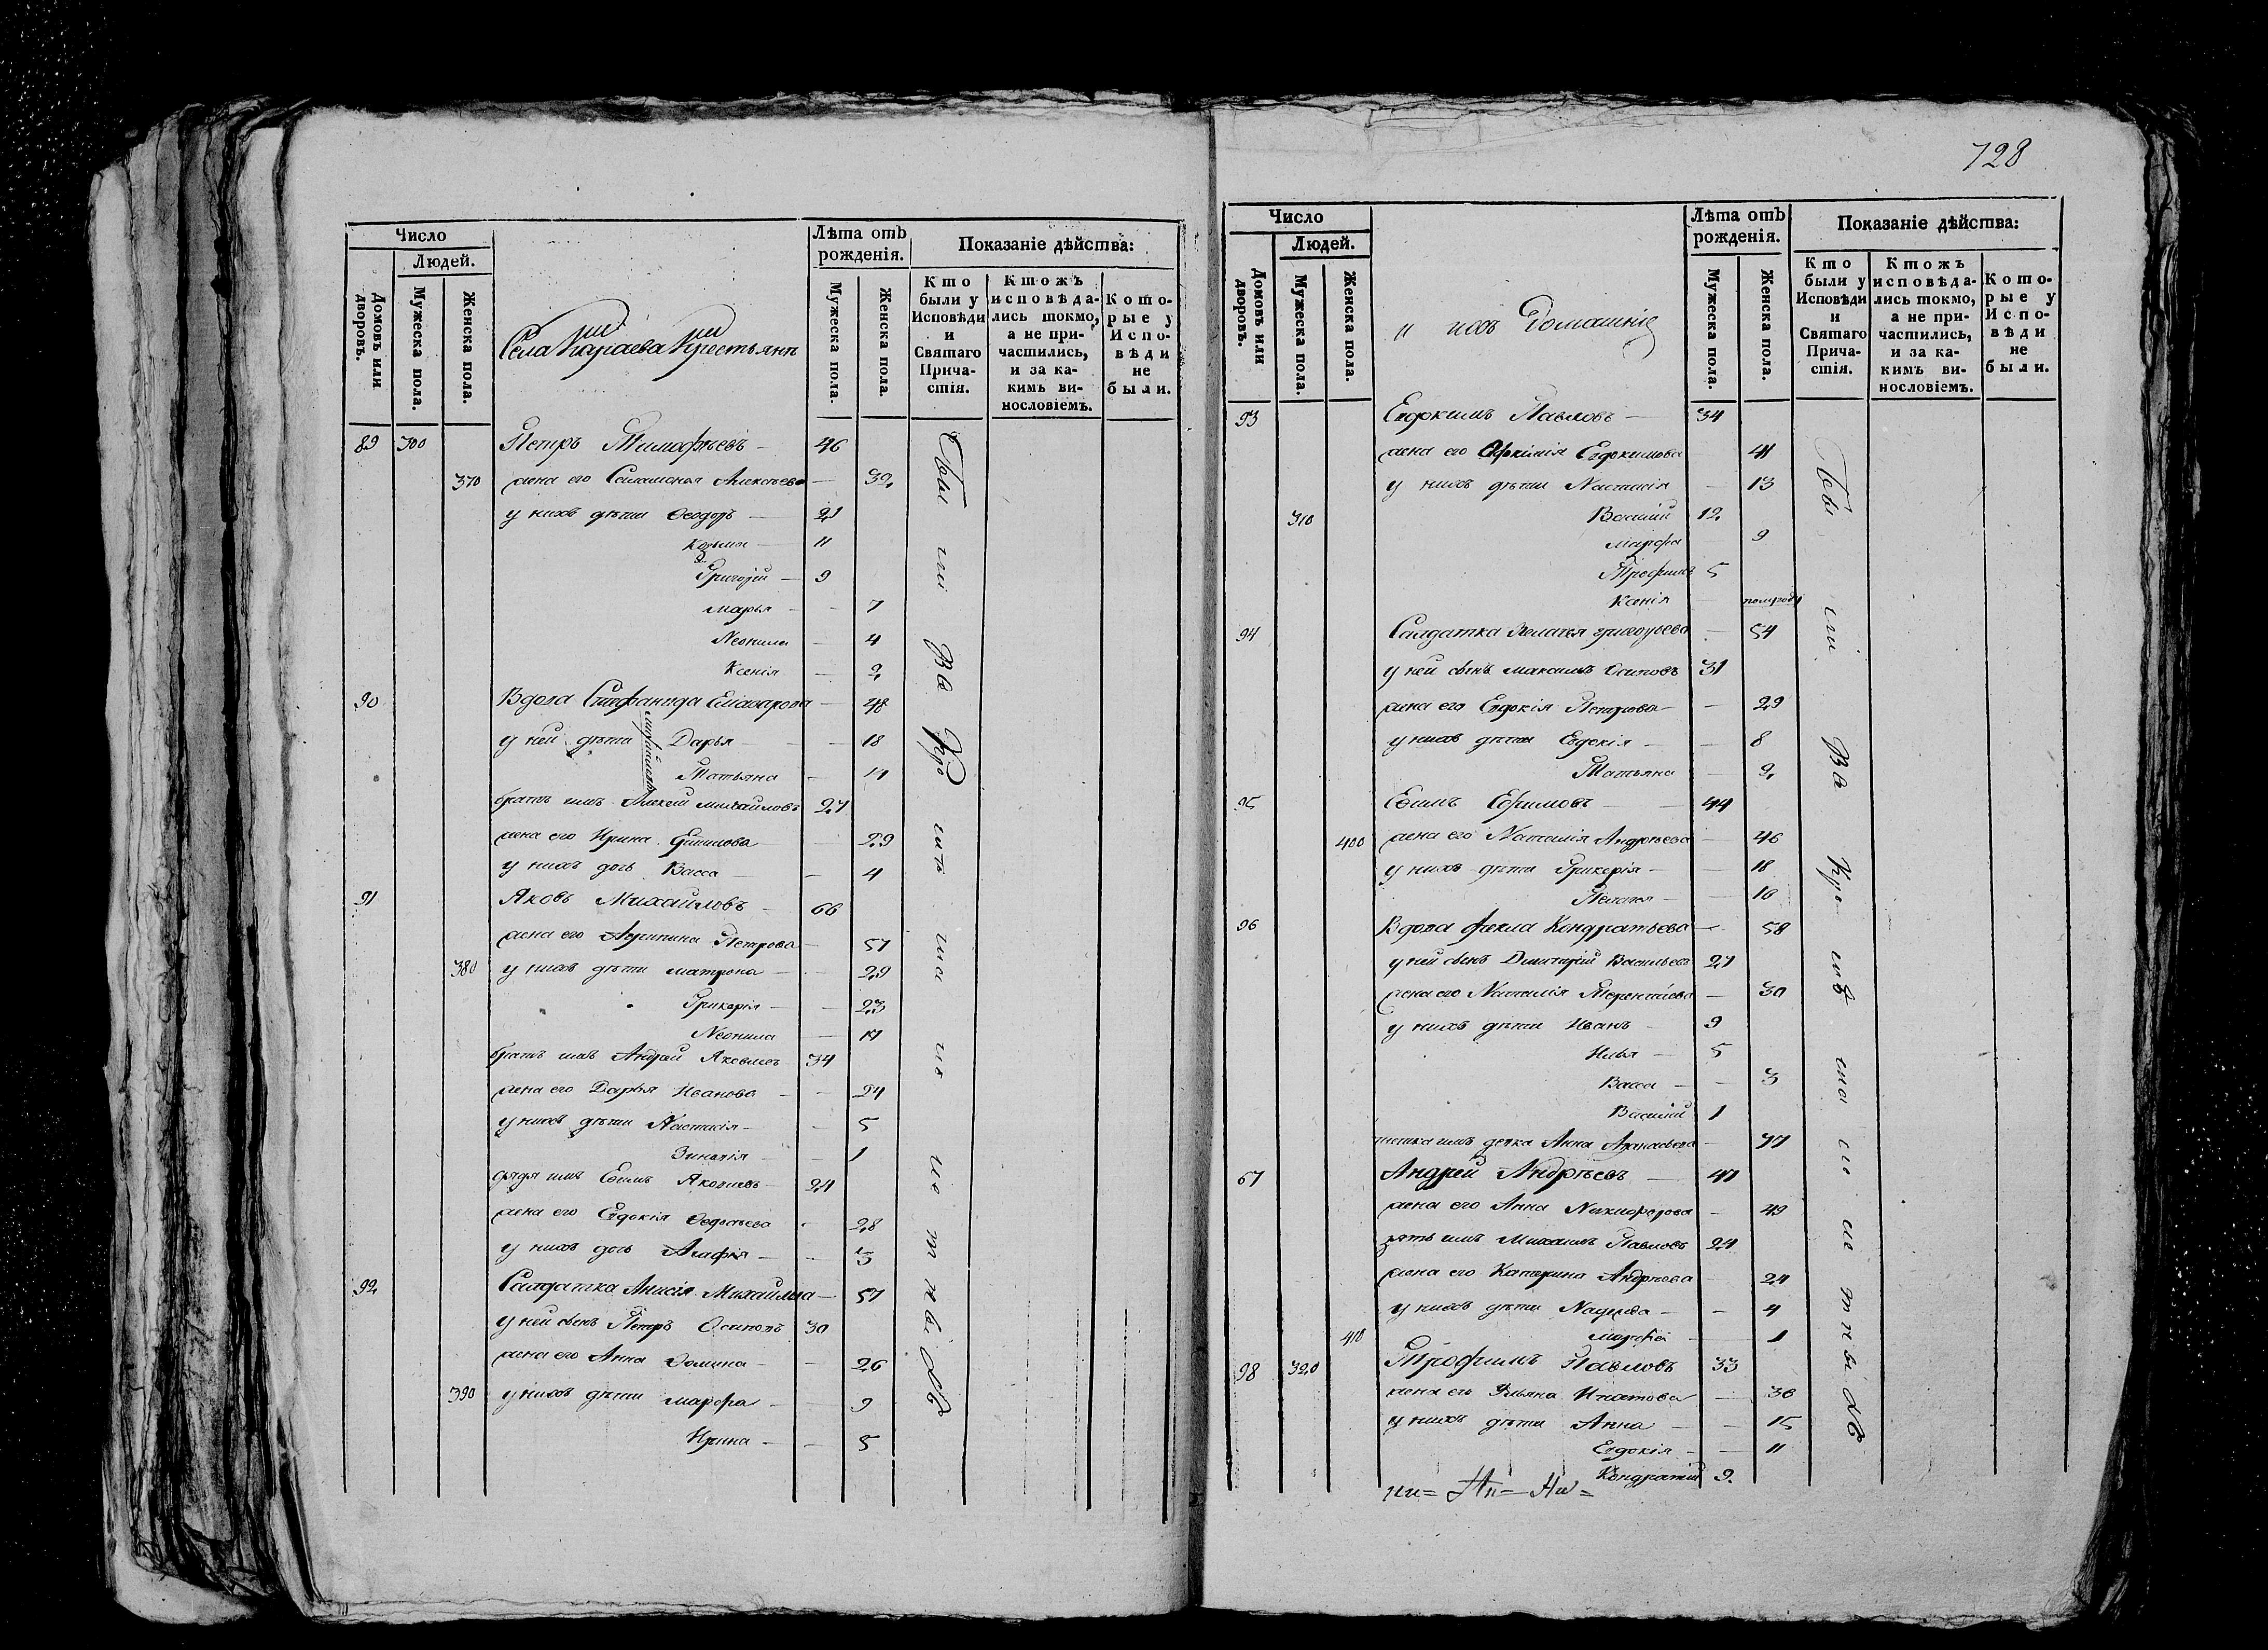 Число
Людей.
Домовъ или дворовъ.
Мужеска пола.
Женска пола.
Села Караева Крестьянѣ
Лѣта отъ рожденія.
Мужеска пола.
Женска пола.
Показаніе дѣйства:
Кто были у Исповѣди и Святаго Причастія.
Ктожъ исповѣдались токмо, а не причастились, и за какимъ винословіемъ.
Которые у Исповѣди не были.
89 300 Петръ Тимофѣевъ — 46
370 жена его Соломонья Алексѣева — 32
у нихъ дѣти Ѳеодоръ — 21
Козьма — 11
Григорій — 9
Марья — 7
Неонила — 4
Ксенія — 2
90 Вдова Елиазарова — 48
у ней дѣти Дарья — 18
Татьяна — 17
братъ имъ Алексей Михайловъ 27
жена его Ирина 29
у нихъ дочь Васса — 4
91 Яковъ Михайловъ — 66
жена его Агрипина Петрова — 57
380 у нихъ дѣти Матрона — 29
Гликерія — 23
Неонила — 17
братъ имъ Андрей Яковлевъ 34
жена его Дарья Иванова — 24
у нихъ дѣти Настасія — 5
Зиновія — 1
дядя имъ Евимъ Яковлевъ 24
жена его Евдокія 28
у нихъ дочь Агафья — 3
92 Салдатка Анисія Михайлова — 57
у ней сынъ Петръ Осиповъ 30
жена его Анна Ѳомина — 26
390 у нихъ дѣти Марфа — 9
Ирина — 5
728
Число
Людей.
Домовъ или дворовъ.
Мужеска пола.
Женска пола.
и ихъ Домашніе
Лѣта отъ рожденія.
Мужеска пола.
Женска пола.
Показаніе дѣйства:
Кто были у Исповѣди и Святаго Причастія.
Ктожъ исповѣдались токмо, а не причастились, и за какимъ винословіемъ.
Которые у Исповѣди не были.
93 Евдокимъ Павловъ — 34
жена его Евдокимова 41
у нихъ дѣти Настасія — 13
310 Василій 12
Марфа — 9
Трофимъ 5
Ксенія — полгода
94 Салдатка Пелагея Григорьева — 54
у ней сынъ Максимъ Осиповъ 31
жена его Евдокія Петрова — 29
у нихъ дѣти Евдокія — 8
Татьяна — 2
95 Евимъ Ефимовъ — 44
400 жена его Наталія Андрѣева — 46
у нихъ дѣти Гликерія — 18
Пелагея — 10
96 Вдова Фекла Кондратьева — 58
у ней сынъ Димитрій Васильевъ 27
жена его Наталія Терентіева — 30
у нихъ дѣти Иванъ — 9
Илья — 5
Васса — 3
Василій 1
тетка имъ девка Анна Афанасьева — 77
67 Андрей Андрѣевъ — 47
жена его Анна Никифорова — 49
зять имъ Михаилъ Павловъ 24
жена его Катерина Андрѣева 24
у нихъ дѣти Надежда — 4
410 Марфа — 1
98 320 Трофимъ Павловъ 33
жена его Ульяна Игнатова — 36
у нихъ дѣти Анна — 15
Евдокія — 11
Кондратій 9